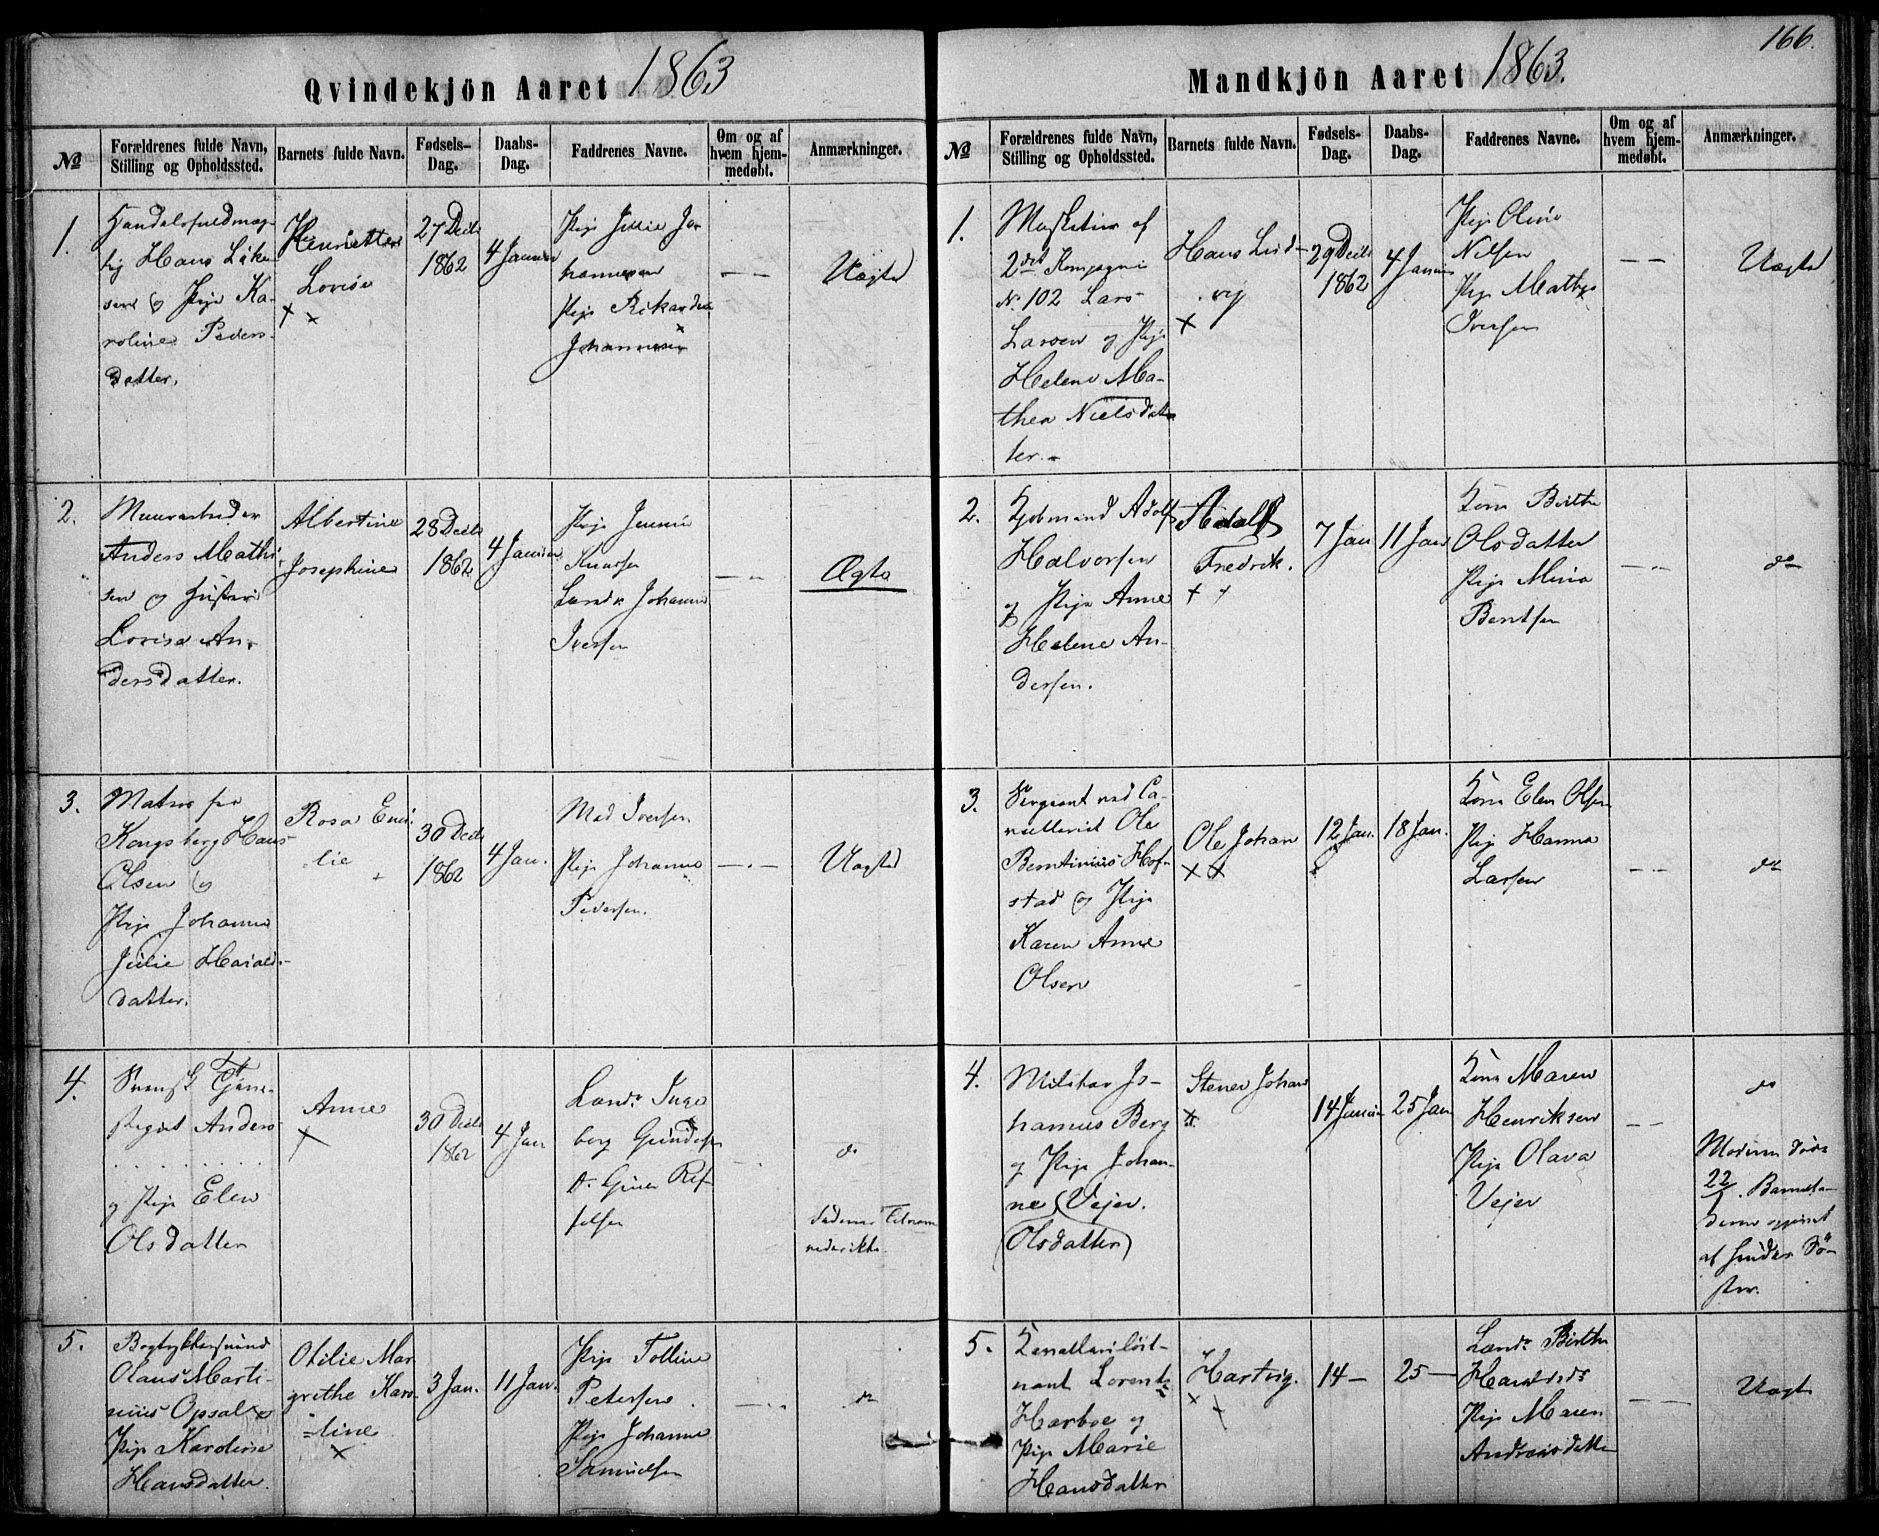 166.
Qvindekjön Aaret 1863
№
Forældrenes fulde Navn,
Stilling og Opholdssted.
Barnets fulde Navn.
Fødsels-
Dag.
Daabs-
Dag.
Faddrenes Navne.
Om og af
hvem hjem-
medøbt.
Anmærkninger.
1.
Handelsfuldmæg-
tig Hans
sen og Pige Ka-
roline Peders-
datter.
Henriette
Lovise
27 Decb
1862
4 Januar
Pige Julie Jo-
hannesen
Pige Rikarda
Johannesen
Uægte
2.
Muurarbeider
Anders Mathi-
sen og Hustru
Lovise An-
dersdatter.
Albertine
Josephine
28 Decb
1862
4 Januar
Pige Jennie
Knudsen
Johanne
Iversen
Ægte
3.
Matros paa
Kongsberg Hans
Olsen og
Pige Johanne
Julie Harald-
datter.
Rosa Emi-
lie
30 Decb
1862
4 Jan.
Mad Iversen
Pige Johanne
Pedersen.
Uægte
4.
Svensk
Anders
og Pige Elen
Olsdatter
Anne
30 Decb
1862
4 Jan
Inge
borg
do
5.
Olaus Marti-
nius Opsal og
Pige Karoline
Hansdatter.
Otilie Mar
grethe Karo
line
3 Jan.
11 Jan.
Pige Tolline
Petersen
Pige Johanne
Samuelsen
do
Mandkjön Aaret 1863.
№
Forældrenes fulde Navn,
Stilling og Opholdssted.
Barnets fulde Navn.
Fødsels-
Dag.
Daabs-
Dag.
Faddrenes Navne.
Om og af
hvem hjem-
medøbt.
Anmærkninger.
1.
Musketeer af
2det Kompagni
No 102 Lars
Larsen og Pige
Helene Ma-
thea Nielsdat
ter.
Hans Lud-
vig
29 Decb
1862
4 Januar
Pige Oline
Nilsen
Pige Mathea
Iversen
Uægte
2.
Kjøbmand Adolf
Halvorsen
og Pige Anne
Helene An-
dersen.
Adolf
Fredrik.
7 Jan
11 Jan
Kone Birthe
Olsdatter
Pige Mina
Bentsen
do
3.
Sergeant ved Ca-
valleriet Ole
Berntinius Hof-
stad og Pige
Karen Anne
Olsen
Ole Johan
12 Jan.
18 Jan.
Kone Elen Olsen
Pige Hanna
Larsen
do
4.
Militær Jo-
hannes Berg
og Pige Johan-
ne Vejer.
(Olsdatter)
Stener Johan
14 Januar
25 Jan
Kone Maren
Henriksen
Pige Olava
Vejer
do
Moderen døde
22/1. Barnets
af hendes Sø-
ster.
5.
Kavalleriløit-
nant Lorentz
Harboe og
Pige Marie
Hansdatter
Hartvig.
14 —
25 —
Birthe
Haralds
Pige Maren
Andreasdatter
Uægte